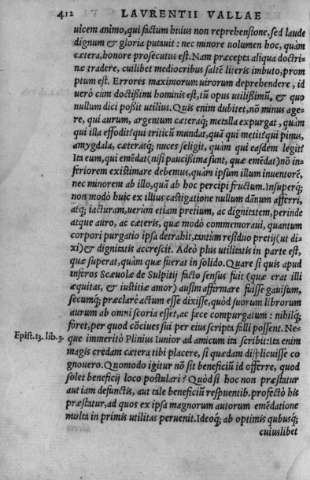 412 LAVRENTII VALLAE
ulcem animo, qui factum huius non reprehensione, sed laude
dignum & gloria putauit: nec minore uolumen hoc, quàm
cætera, honore prosecutus est. Nam præcepta aliqua doctri-
ne tradere, cuilibet mediocribus saltē literis imbuto, prom
ptum est. Errores maximorum uirorum deprehendere, id
uerò cum doctißimi hominis est, tū opus utilißimū, & quo
nullum dici poßit utilius. Quis enim dubitet, nō minus age-
re, qui aurum, argentum cæteraq; metalla expurgat, quàm
qui illa effodit? qui triticū mundat, quā qui metit? qui pinus,
amygdala, cæterasq; nuces seligit, quàm qui easdem legit?
Ita eum, qui emēdat (nisi pauciβima sunt, quæ emēdat) nō in-
feriorem existimare debemus, quàm ipsum illum inuentorē,
nec minorem ab illo, quā ab hoc percipi fructum. Insuperq;
non modò huic ex illius castigatione nullum dānum afferri,
atq; iacturam, uerùm etiam pretium, ac dignitatem, perinde
atque auro, ac cæteris, quæ modò commemoraui, quantum
corpori purgatio ipsa detrahit, tantūm residuo pretij (ut di
xi) & dignitatis accrescit. Adeò plus utilitatis in parte est,
quæ superat, quàm quæ fuerat in solido. Quare si quis apud
inferos Scæuolæ de Sulpitij facto sensus fuit (quæ erat illi
æquitas, & iustitiæ amor) ausim affirmare fuisse gauisum,
secumq; præclarè actum esse dixisse, quòd suorum librorum
aurum ab omni scoria esset, ac fæce compurgatum: nihilq;
foret, per quod cōciues sui per eius scripta falli possent. Ne-
Epist. 13. lib. 3. que immeritò Plinius Iunior ad amicum ita scribit: Ita enim
magis credam cætera tibi placere, si quædam displicuisse co
gnouero. Quomodo igitur nō sit beneficiū id offerre, quod
solet beneficij loco postulari? Quòd si hoc non præstatur
aut iam defunctis, aut tale beneficiū respuentib. profectò his
præstatur, ad quos ex ipsa magnorum autorum emēdatione
multa in primis utilitas peruenit. Ideoq; ab optimis quibusq;
cuiuslibet